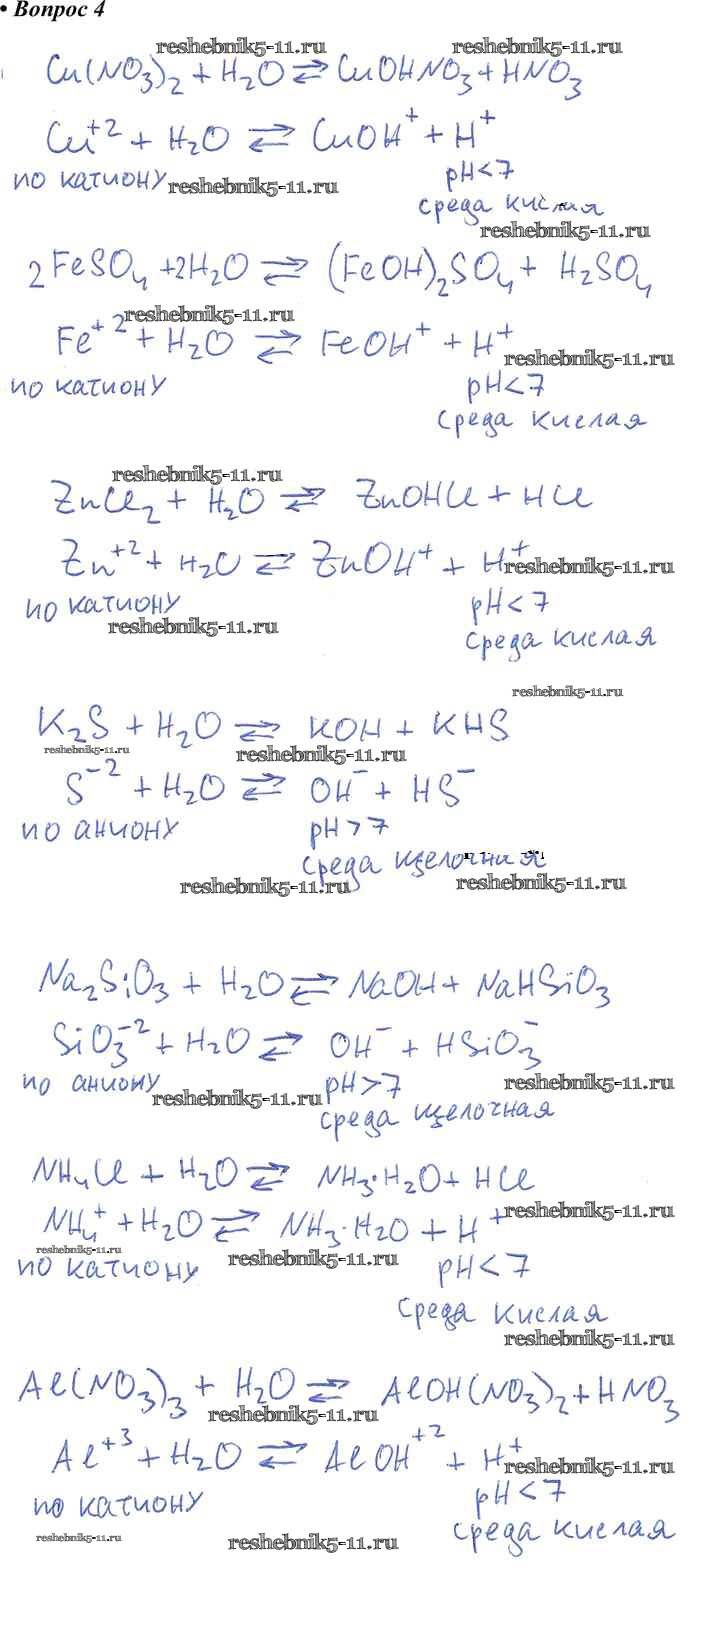 • Вопрос 4
reshebnik5-11.ru reshebnik5-11.ru
Cu(NO₃)₂ + H₂O ⇄ CuOHNO₃ + HNO₃
Cu⁺² + H₂O ⇄ CuOH⁺ + H⁺
по катиону reshebnik5-11.ru pH<7
среда кислая
reshebnik5-11.ru
2FeSO₄ + 2H₂O ⇄ (FeOH)₂SO₄ + H₂SO₄
reshebnik5-11.ru
Fe⁺² + H₂O ⇄ FeOH⁺ + H⁺
reshebnik5-11.ru
по катиону pH<7
среда кислая
reshebnik5-11.ru
ZnCl₂ + H₂O ⇄ ZnOHCl + HCl
Zn⁺² + H₂O ⇄ ZnOH⁺ + H⁺
reshebnik5-11.ru
по катиону pH<7
reshebnik5-11.ru
среда кислая
reshebnik5-11.ru
K₂S + H₂O ⇄ KOH + KHS
reshebnik5-11.ru reshebnik5-11.ru
S⁻² + H₂O ⇄ OH⁻ + HS⁻
по аниону pH>7
среда щелочная
reshebnik5-11.ru reshebnik5-11.ru
Na₂SiO₃ + H₂O ⇄ NaOH + NaHSiO₃
SiO₃⁻² + H₂O ⇄ OH⁻ + HSiO₃⁻
по аниону pH>7 reshebnik5-11.ru
reshebnik5-11.ru
среда щелочная
NH₄Cl + H₂O ⇄ NH₃·H₂O + HCl
reshebnik5-11.ru
NH₄⁺ + H₂O ⇄ NH₃·H₂O + H⁺
reshebnik5-11.ru reshebnik5-11.ru
по катиону pH<7
среда кислая
reshebnik5-11.ru
Al(NO₃)₃ + H₂O ⇄ AlOH(NO₃)₂ + HNO₃
reshebnik5-11.ru
Al⁺³ + H₂O ⇄ AlOH⁺² + H⁺
reshebnik5-11.ru
по катиону pH<7
среда кислая
reshebnik5-11.ru reshebnik5-11.ru